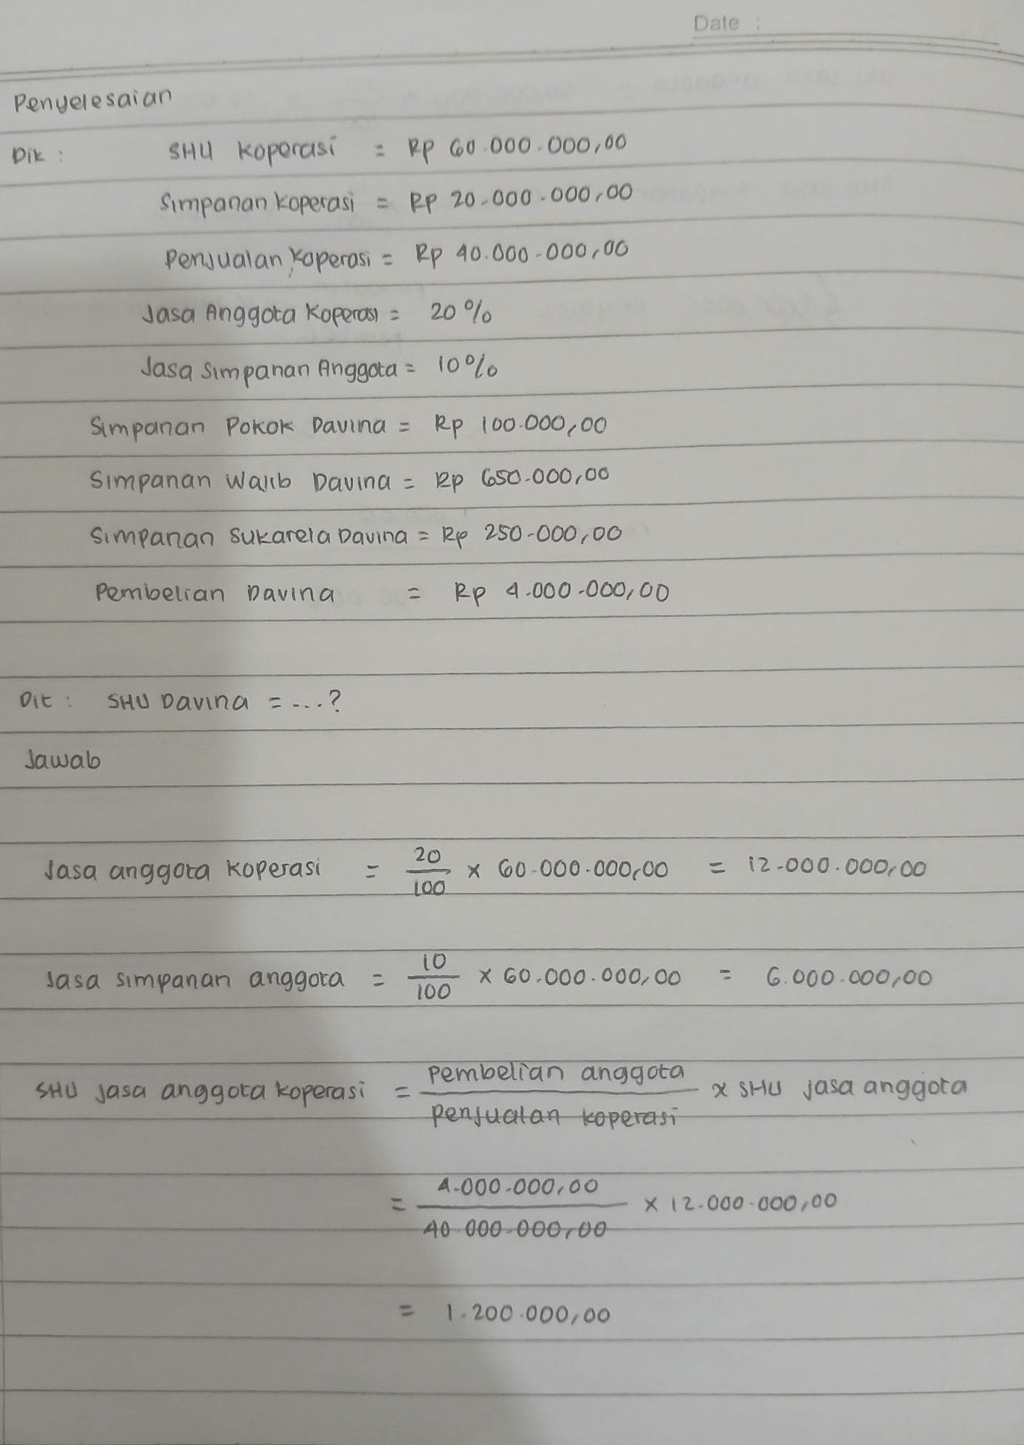 Date :
Penyelesaian
Dik : SHU Koperasi = Rp 60.000.000,00
Simpanan Koperasi = Rp 20.000.000,00
Penjualan Koperasi = Rp 40.000.000,00
Jasa Anggota Koperasi = 20%
Jasa Simpanan Anggota = 10%
Simpanan Pokok Davina = Rp 100.000,00
Simpanan Wajib Davina = Rp 650.000,00
Simpanan Sukarela Davina = Rp 250.000,00
Pembelian Davina = Rp 4.000.000,00
Dit : SHU Davina = ...?
Jawab
Jasa anggota koperasi = 20/100 x 60.000.000,00 = 12.000.000,00
Jasa simpanan anggota = 10/100 x 60.000.000,00 = 6.000.000,00
SHU jasa anggota koperasi = pembelian anggota/penjualan koperasi x SHU jasa anggota
= 4.000.000,00/40.000.000,00 x 12.000.000,00
= 1.200.000,00